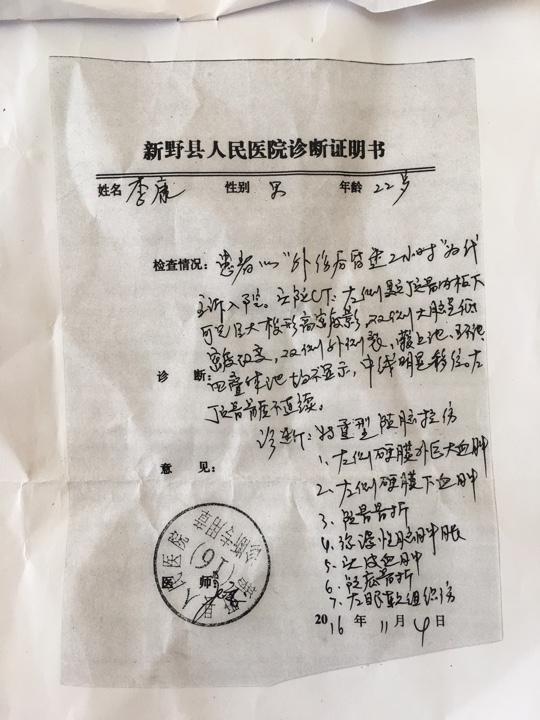 新野县人民医院诊断证明书
姓名 李康 性别 男 年龄 22岁
检查情况：患者以"外伤后昏迷2小时"为代
主诉入院。头颅CT：左侧颞顶骨内板下
可见巨大梭形高密度影，双侧大脑呈低
密度改变，双侧外侧裂，鞍上池、环池
四叠体池均不显示，中线明显移位。左
诊 断：
顶骨骨质不连续。
诊断：特重型颅脑损伤
意 见：
1、左侧硬膜外巨大血肿
2、左侧硬膜下血肿
3、颅骨骨折
4、弥漫性脑肿胀
5、头皮血肿
6、颅底骨折
7、左眼软组织伤
人民医院
诊断专用章
(16)
医 师：
2016 年 11 月 4 日